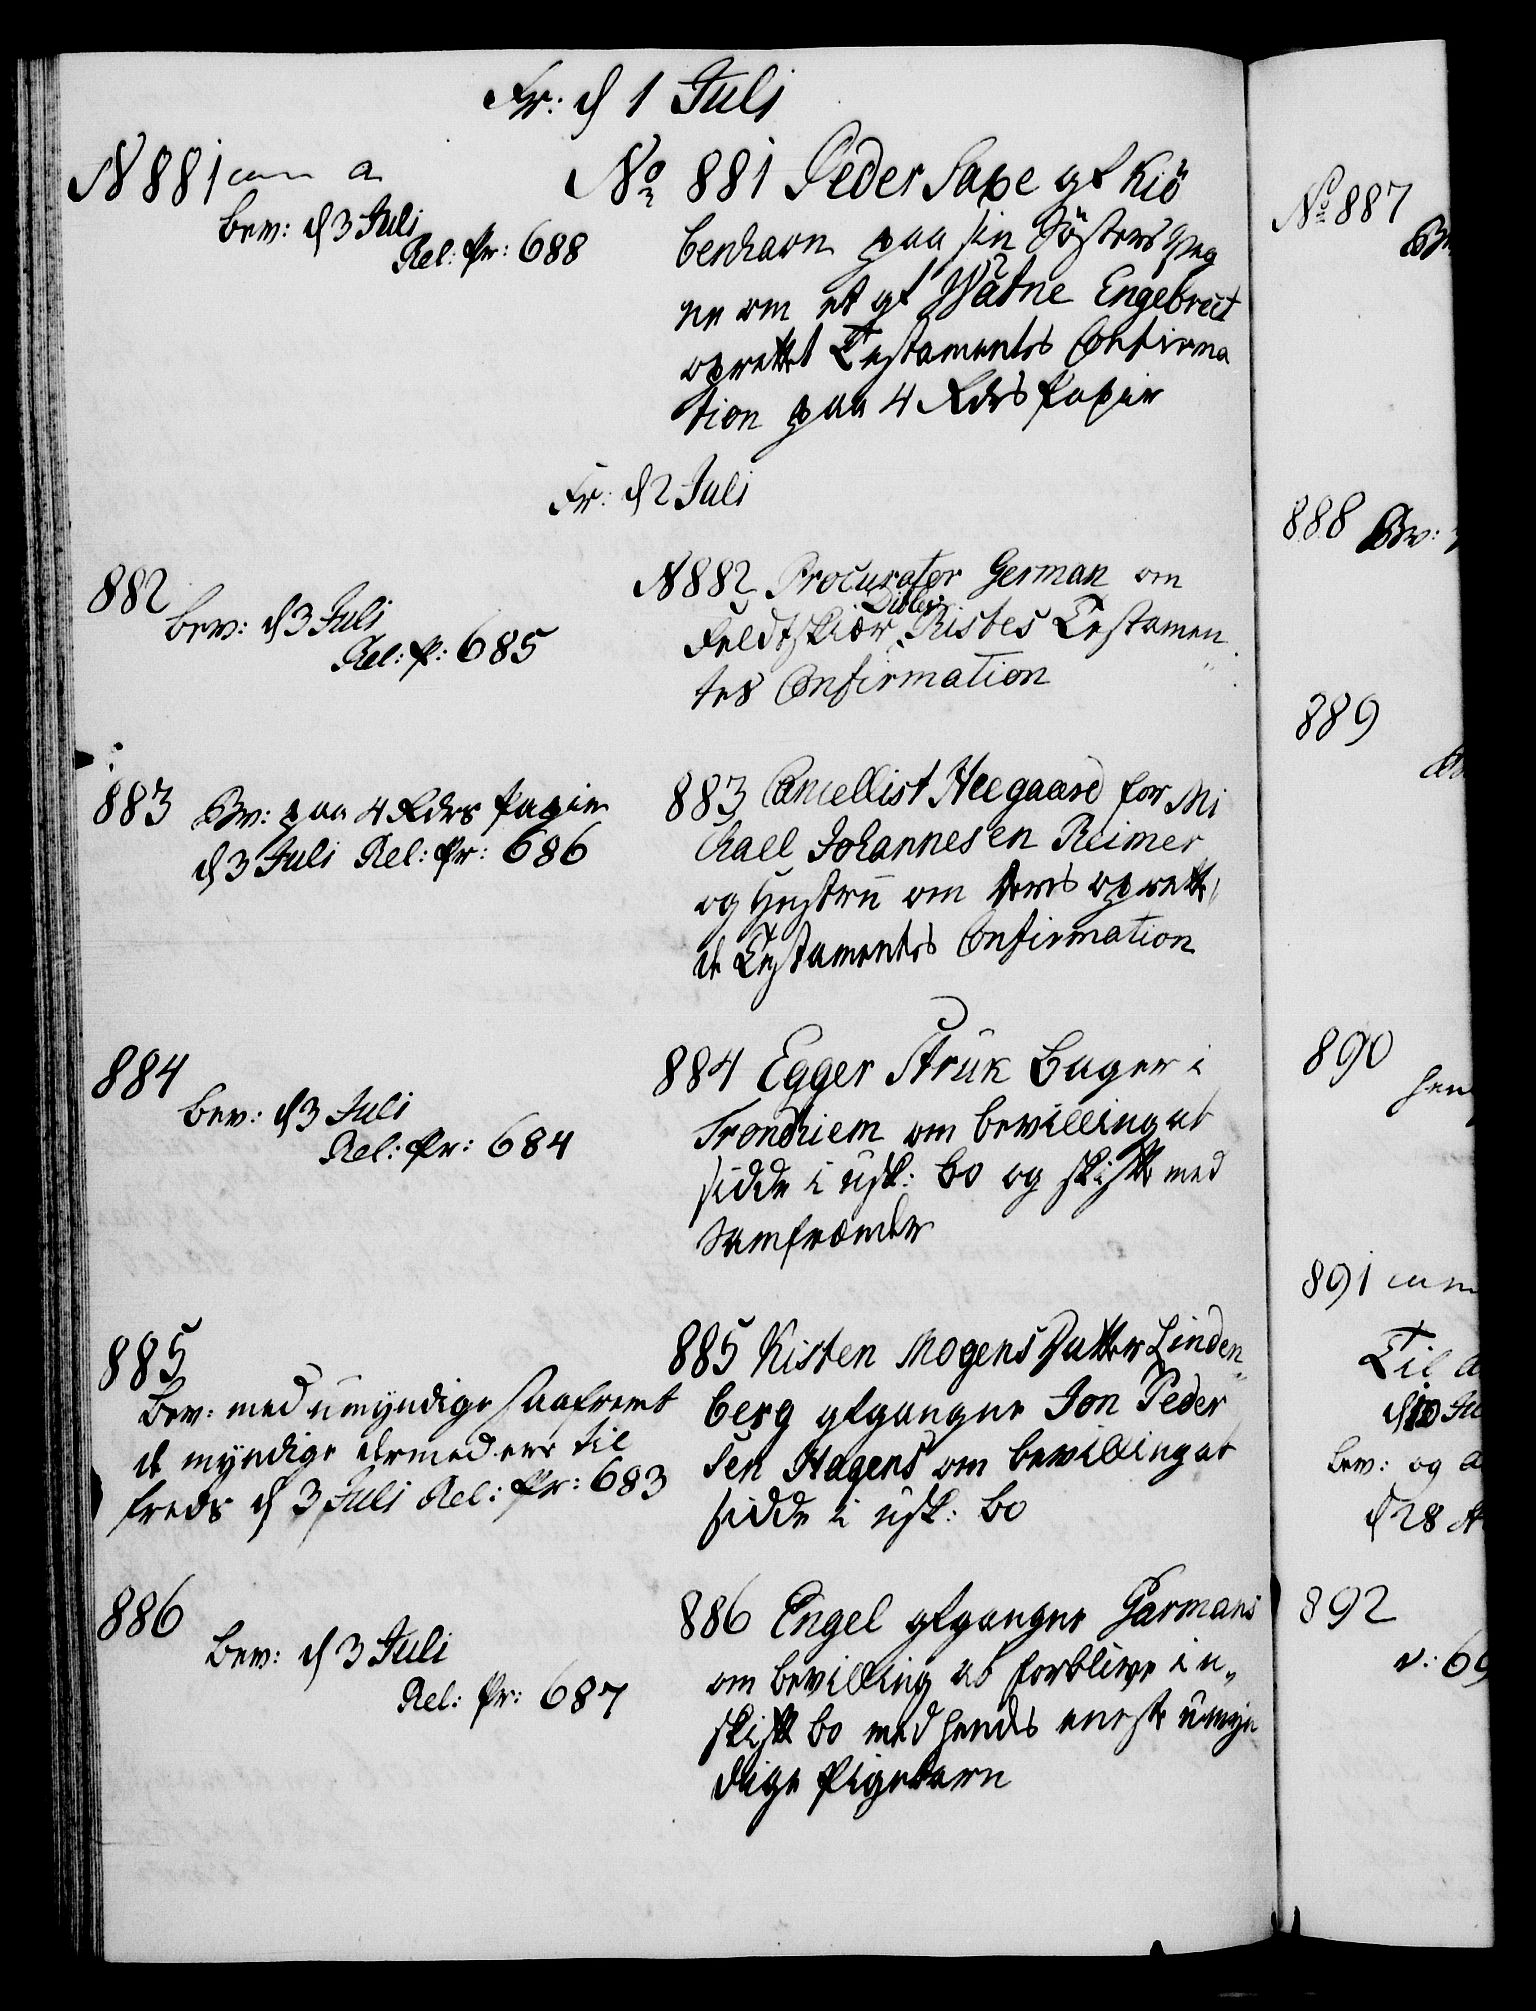 Fr: d 1 Juli
N 881 cum a
Bev: d 3 Juli
Rel: Pr: 688
No 881 Peder Saxe af Kiö
benhavn paa sin Søsters Veg
ne om et af Wätne Engebrect
oprettet Testamentes Confirma
tion paa 4 Rdrs Papir
Fr: d 2 Juli
882
Bev: d 3 Juli
Rel: P: 685
N 882 Procurator German om
Feldtskiær Ristes Testamen
tes Confirmation
883 Bev: paa 4 Rdrs Papir
d 3 Juli Rel: Pr: 686
883 Cancellist Heegaard for Mi
chael Johannesen Reimer
og Hustru om deres oprette
de Testamentes Confirmation
884
Bev: d 3 Juli
Rel: Pr: 684
884 Egger Strük Bager i
Trondhiem om bevilling at
sidde i usk: bo og skifte med
Samfrænder
885
Bev: med umyndige saafremt
de myndige dermed ere til
freds d 3 Juli Rel: Pr: 683
885 Kisten Mogens Datter Linden
berg afgangne Jon Peder
sen Hagens om bevilling at
sidde i usk: bo
886
Bev: d 3 Juli
Rel: Pr: 687
886 Engel afgangne Garmans
om bevilling at forblive i u
skift bo med hendes eneste umyn
dige Pigebarn
No 887
888 Bev:
889
890
891 cum
Til
Bev: og
d 28
892